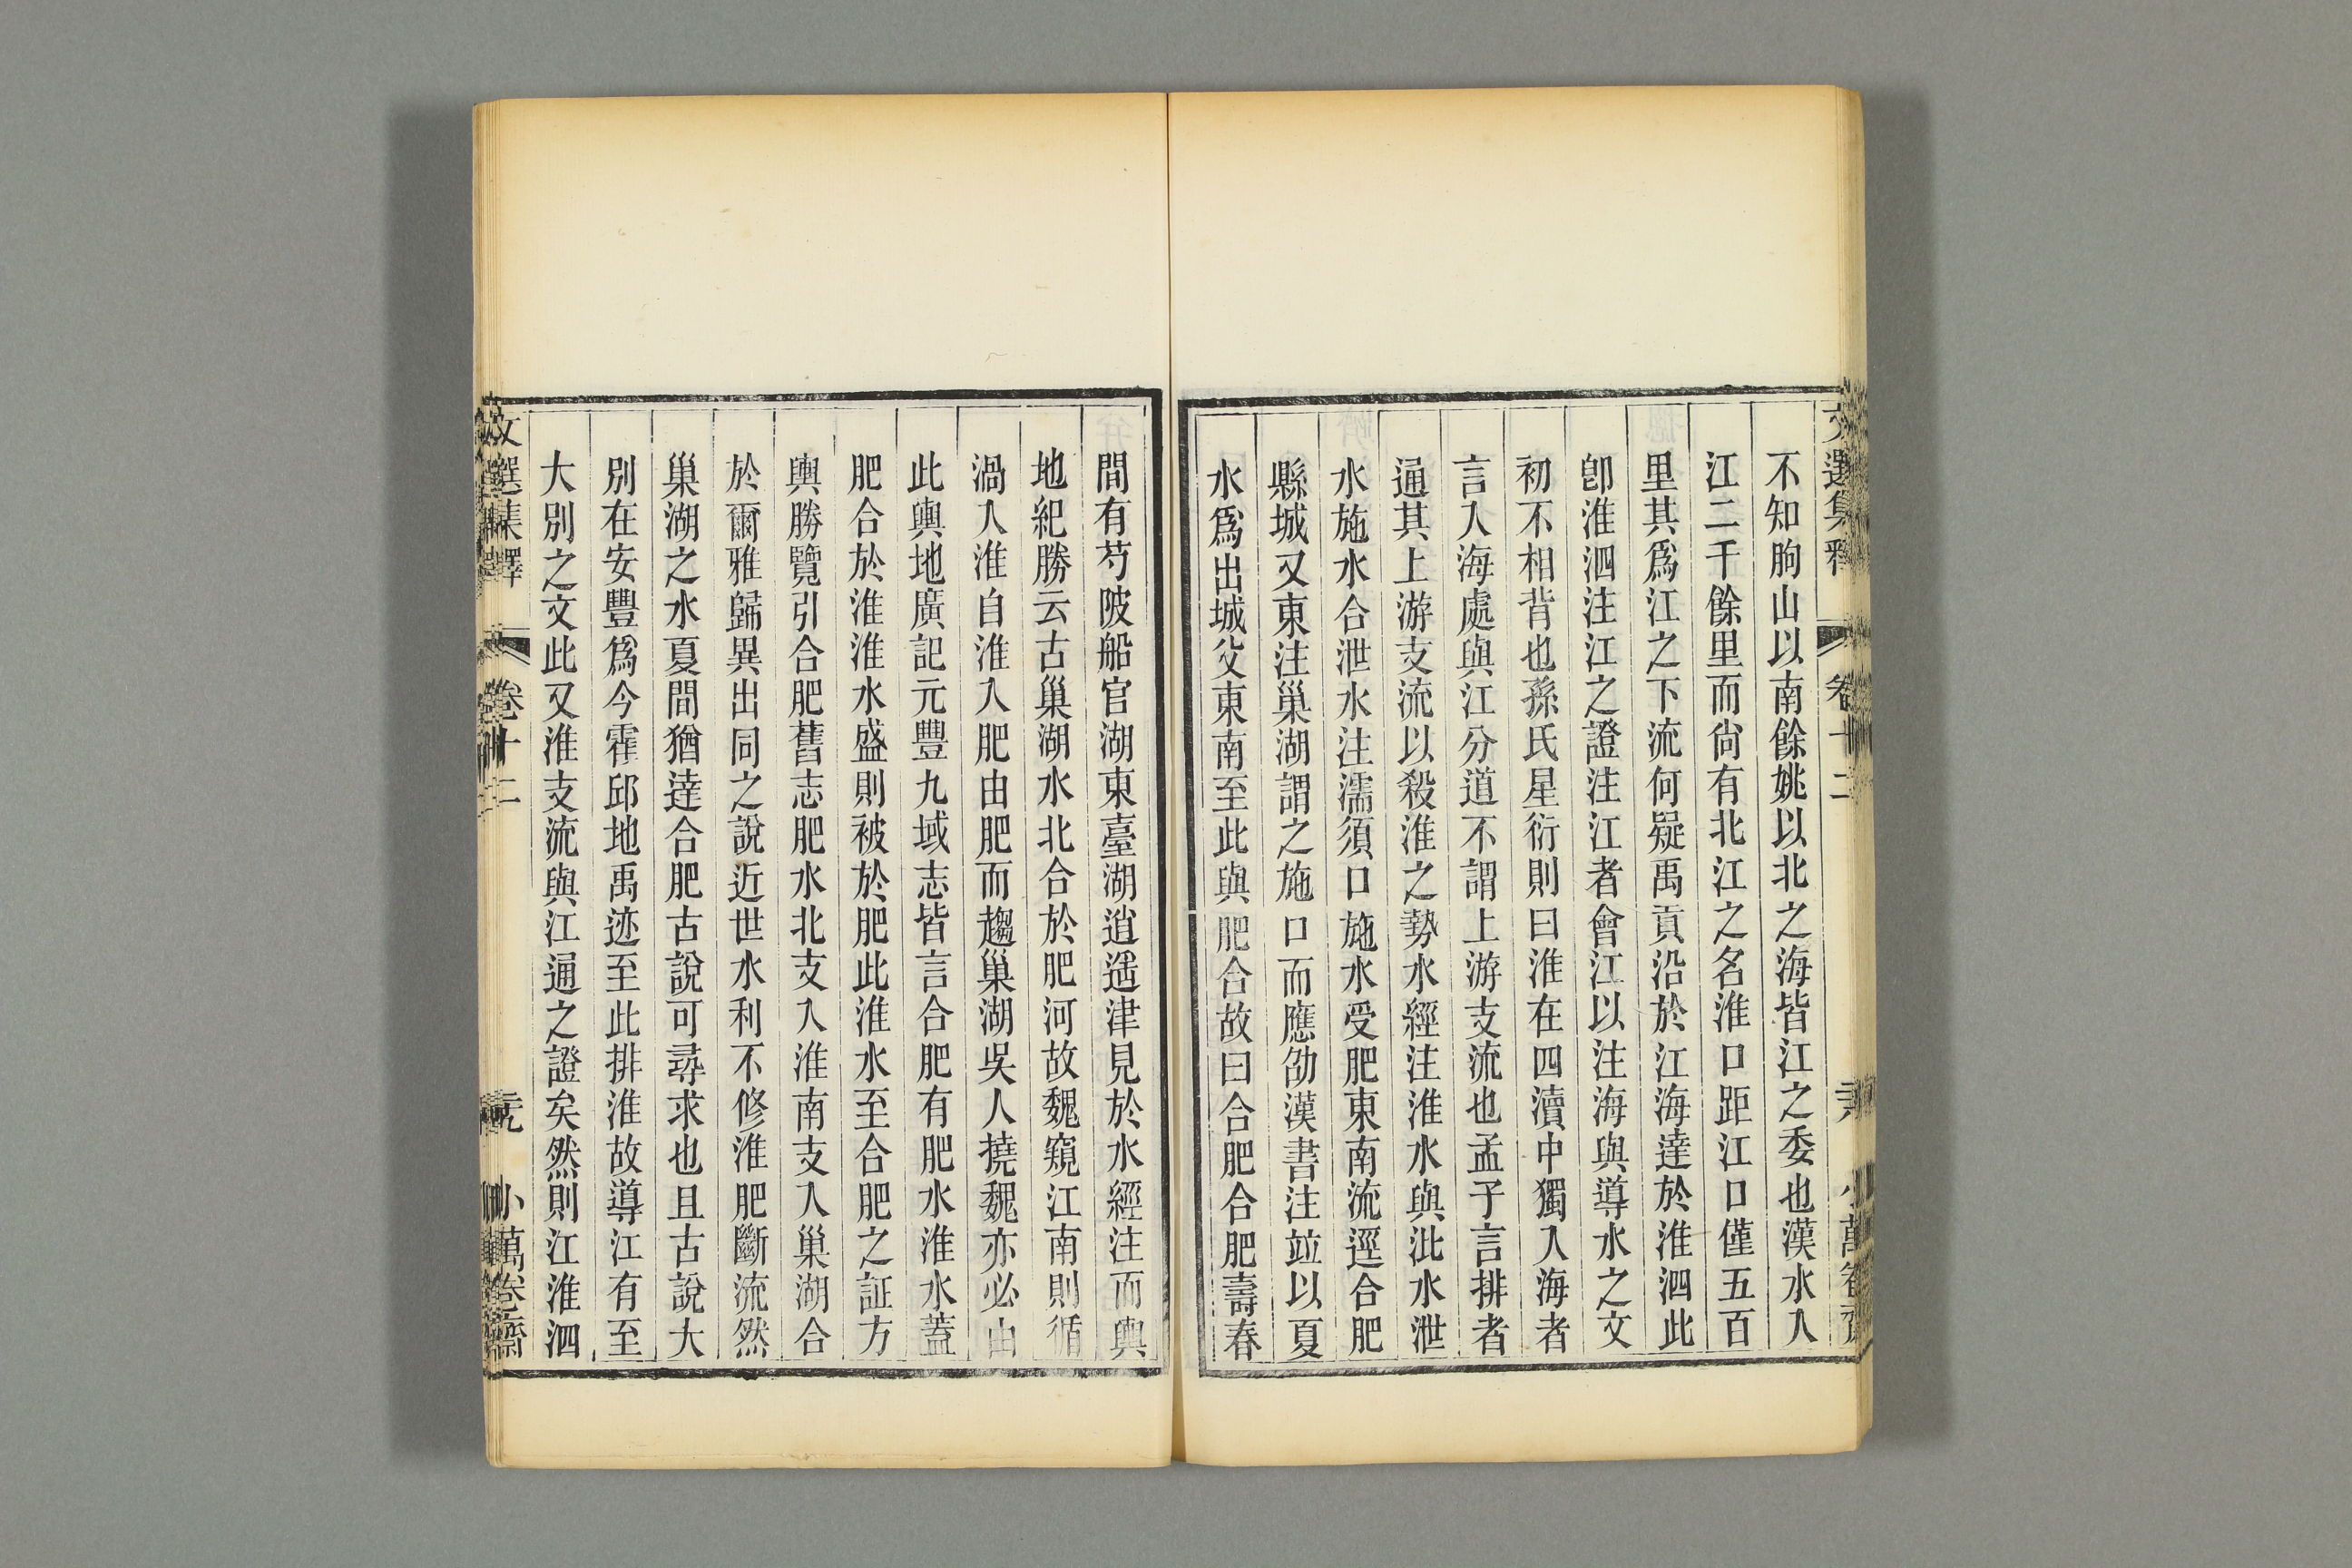 不知朐山以南餘姚以北之海皆江之委也漢水入
江二千餘里而尙有北江之名淮口距江口僅五百
里其爲江之下流何疑禹貢沿於江海達於淮泗此
卽淮泗注江之證注江者會江以注海與導水之文
初不相背也孫氏星衍則曰淮在四瀆中獨入海者
言入海處與江分道不謂上游支流也孟子言排者
通其上游支流以殺淮之勢水經注淮水與沘水泄
水施水合泄水注濡須口施水受肥東南流逕合肥
縣城又東注巢湖謂之施口而應劭漢書注竝以夏
水爲出城父東南至此與肥合故曰合肥合肥壽春
間有芍陂船官湖東臺湖逍遙津見於水經注而輿
地紀勝云古巢湖水北合於肥河故魏窺江南則循
渦入淮自淮入肥由肥而趨巢湖吳人撓魏亦必由
此輿地廣記元豐九域志皆言合肥有肥水淮水蓋
肥合於淮淮水盛則被於肥此淮水至合肥之証方
輿勝覽引合肥舊志肥水北支入淮南支入巢湖合
於爾雅歸異出同之說近世水利不修淮肥斷流然
巢湖之水夏間猶達合肥古說可尋求也且古說大
別在安豐爲今霍邱地禹迹至此排淮故導江有至
大別之文此又淮支流與江通之證矣然則江淮泗
文選集釋 卷十二 小萬卷齋